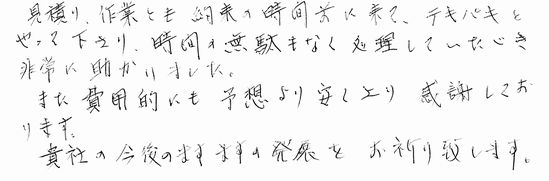 見積り、作業とも約束の時間前に来て、テキパキと
やって下さり、時間の無駄もなく処理していただき
非常に助かりました。
また費用的にも予想より安く上り感謝してお
ります。
貴社の今後のますますの発展をお祈り致します。